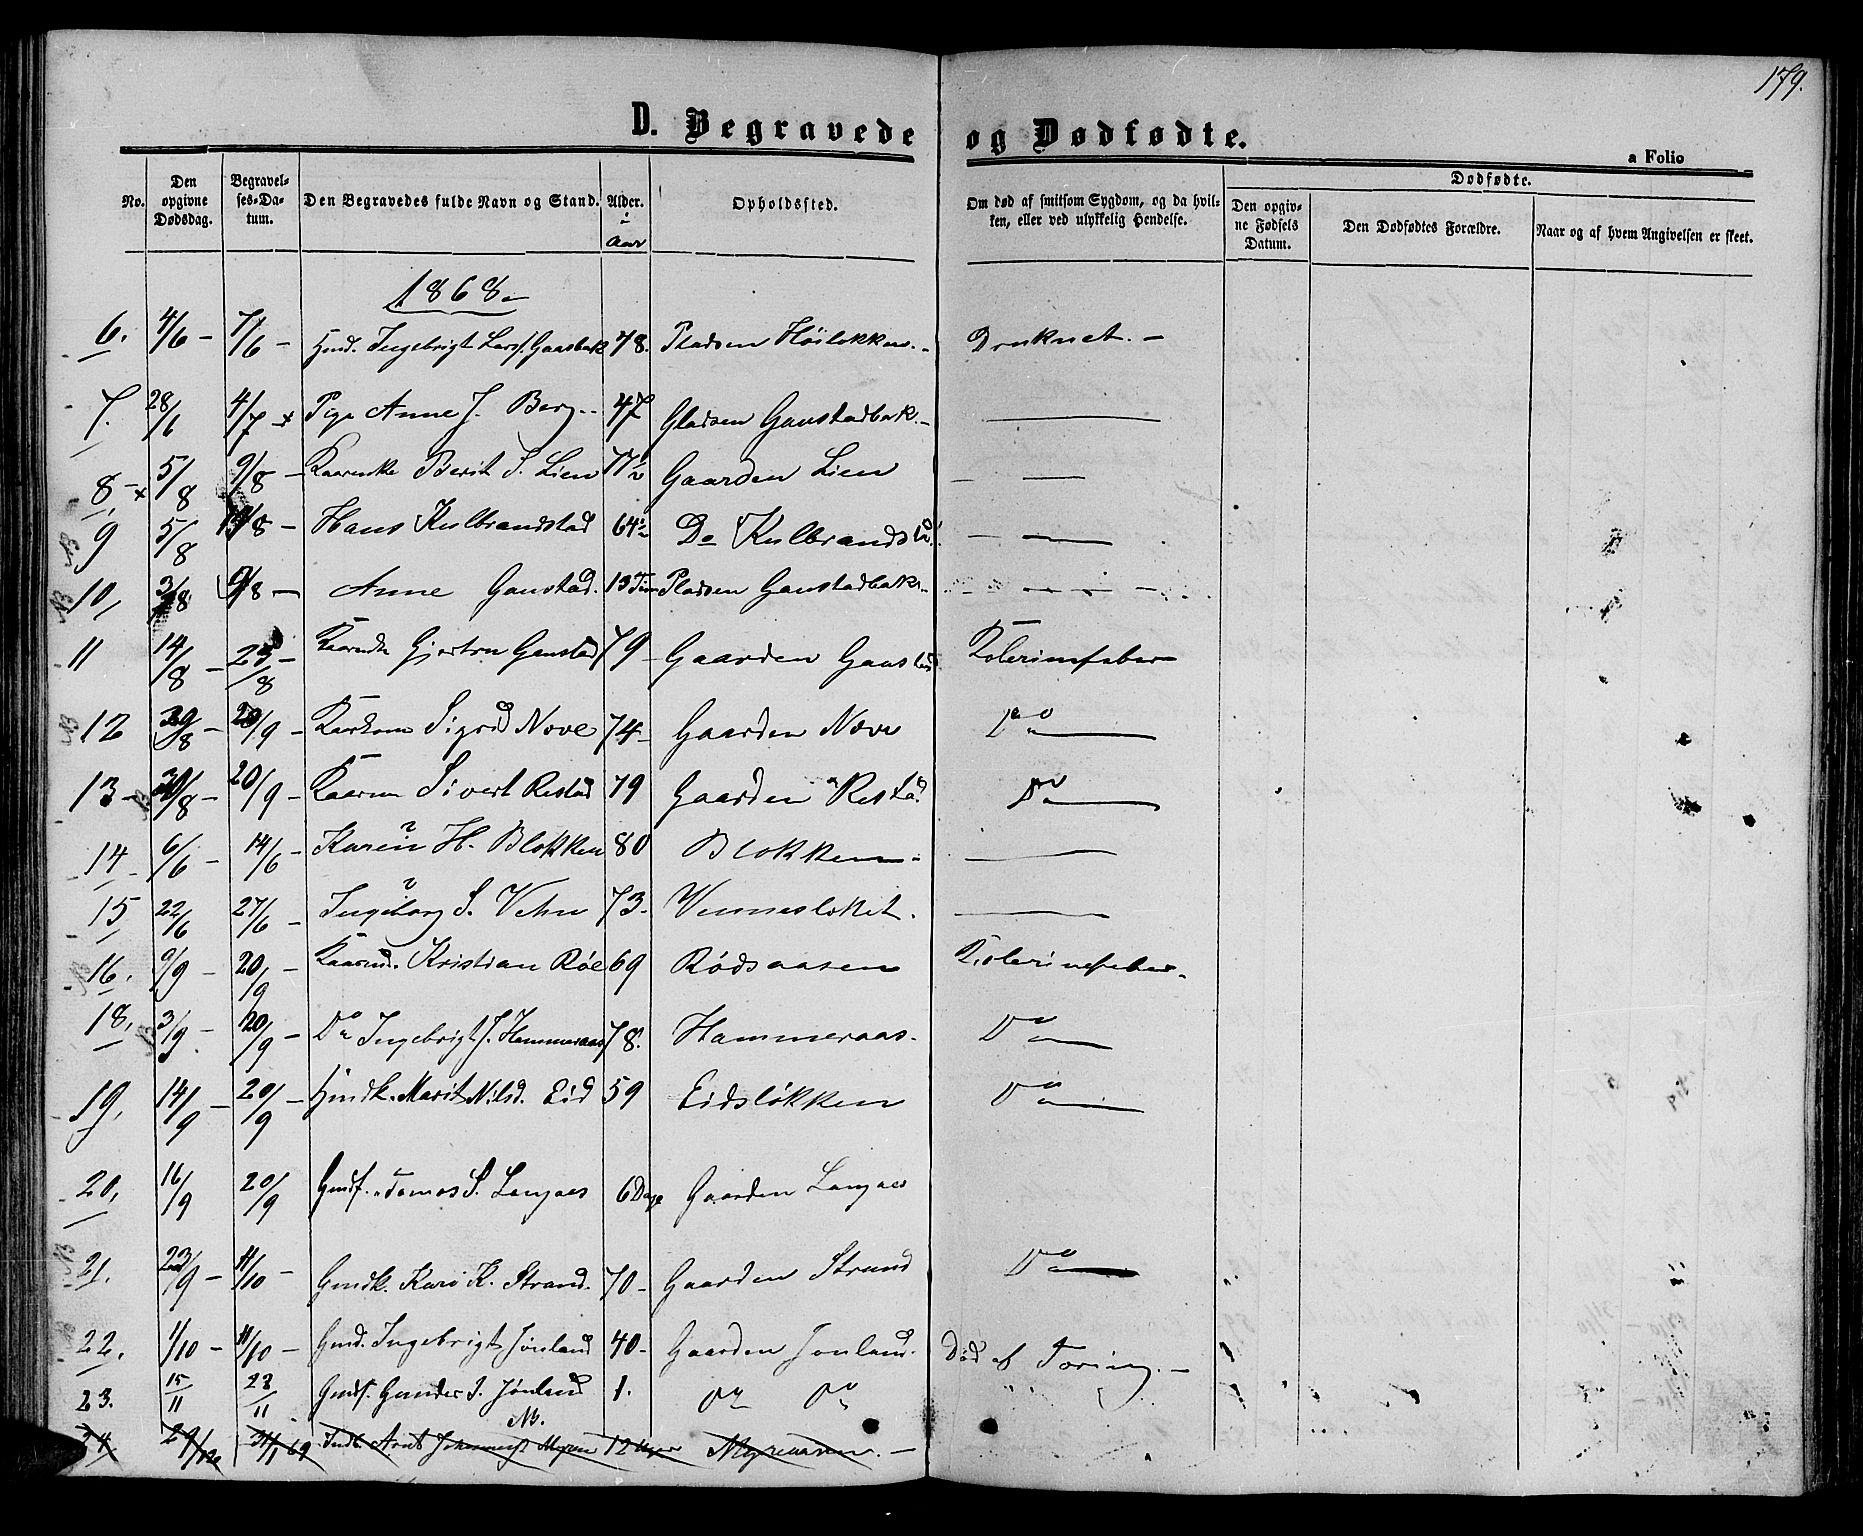 179.
D. Begravede og Dødfødte.
a Folio
No. Den opgivne Dødsdag. Begravelses-Datum. Den Begravedes fulde Navn og Stand. Alder. i Aar Opholdssted. Om død af smitsom Sygdom, og da hvilken, eller ved ulykkelig Hendelse. Dødfødte. Den opgivne Fødsels Datum. Den Dødfødtes Forældre. Naar og af hvem Angivelsen er skeet.
1868
6. 4/6 - 7/6 - Ingebrigt Lars. 78. Pladsen Høilokken. - Druknet. -
7. 28/6 4/7 x Pige Anne J. Berg 47 Gladsen Ganstadbak. -
8, - x 5/8 9/8 - Berit S. Lien 77½ Gaarden Lien
9 5/8 /8 - Hans Kulbrandstad 64½ Do Kulbrandsta
10, 3/8 9/8 - Anne Ganstad. 13 Pladsen Ganstadbak
11 14/8 - 23/8 - Gjertru Ganstad 79 - Gaarden Ganstad Kolerinefeber
12 /8 - 20/9 - Sigrid Nove 74 - Gaarden Nove Do
13 - 30/8 - 20/9 - Sivert Restad 79 Gaarden Restad Do
14 6/6 - 14/6 - Karen H. Blokken 80 Blokken
15 22/6 27/6 - Ingeborg S. Vehn 73. Vennesloket.
16. 9/9 - 20/9 - Kaarm. Kristian Röe 69 Rödsaasen Kolerinefeber
18, 3/9 - 20/9 - Do Ingebrigt J. Hammeraas 78. Hammeraas. Do
19, 14/9 - 20/9 - Hmdk. Marit Nilsd. Eid 59 Eidslökken Do
20, 16/9 20/9 Gmdf. Tomas S. Langaas 6 Dage Gaarden Langaas
21. 23/9 - 11/10 - Gmdk. Kari K. Strand. 70 - Gaarden Strand Do
22. 1/10 - 11/10 - Gmd. Ingebrigt Jönland 40 - Gaarden Jonland. Död af Tæring. -
23. 15/11 23/11 Gmdf. Gunder I. Jönland 1. Do Do
NB.
24 29/12 31/1 69 Indk. Arnt Johannes Myren 12 Uger Myreaasen. -